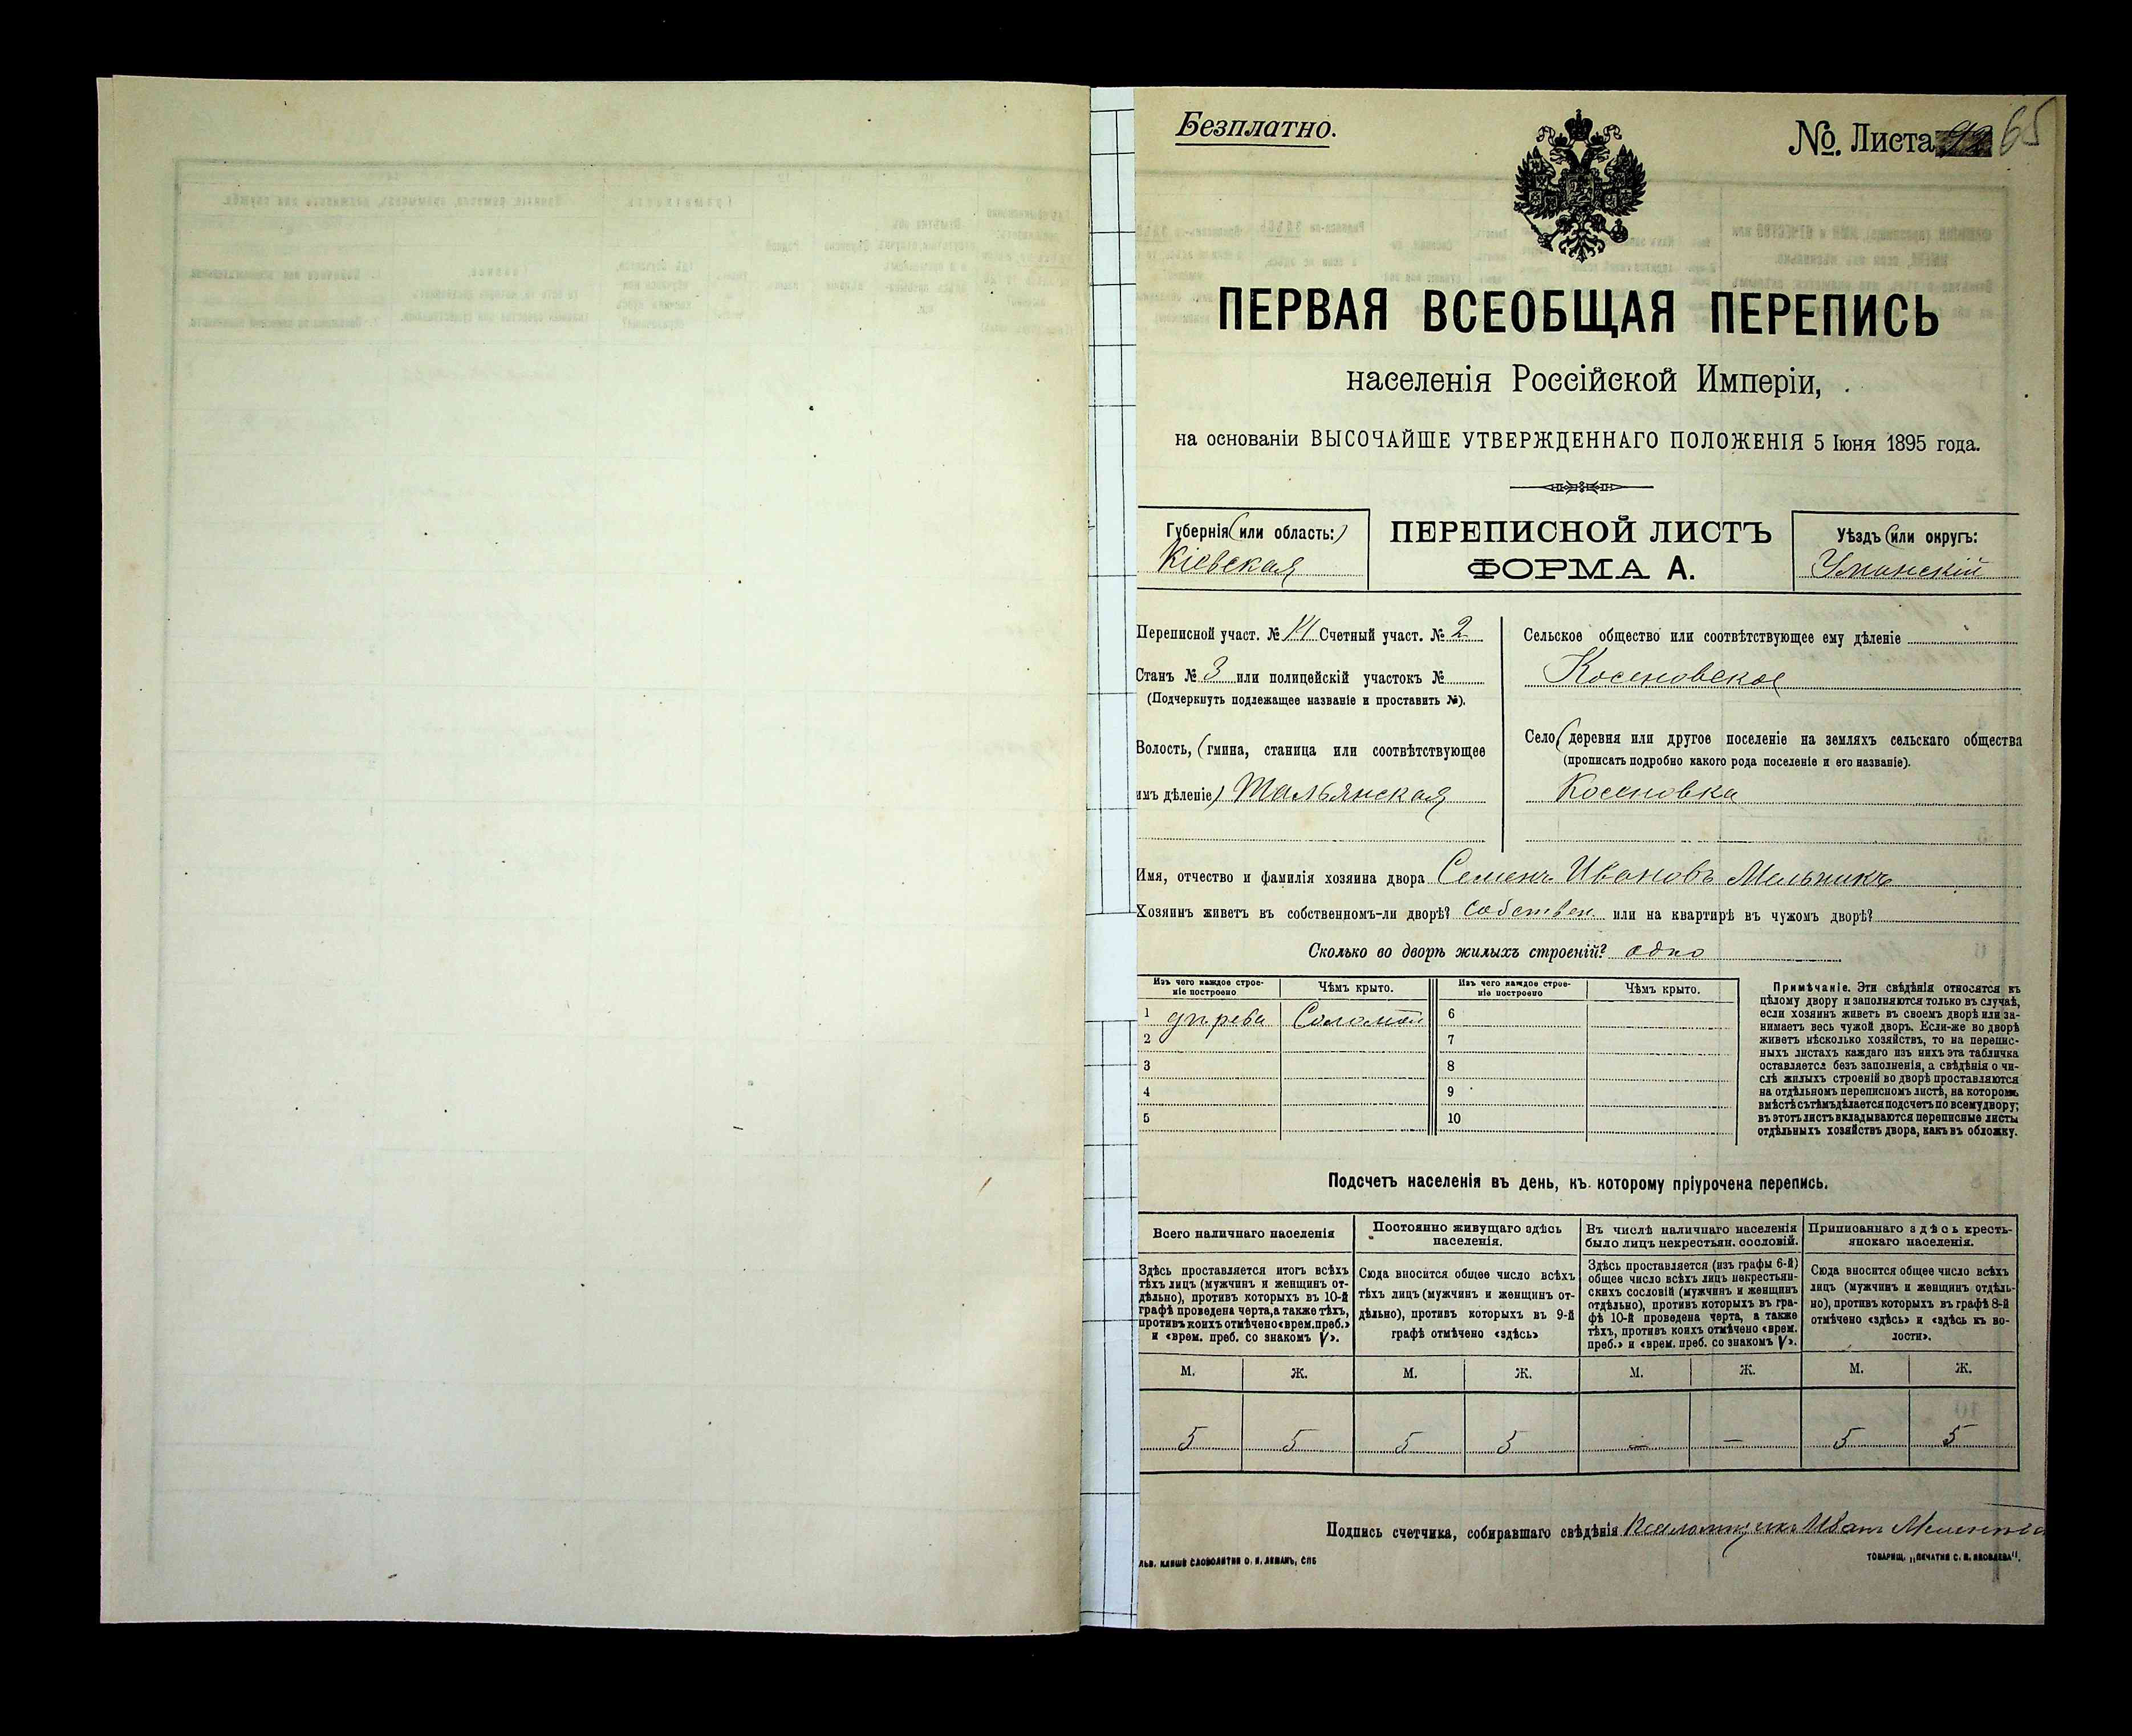 Безплатно.
№. Листа 65
ПЕРВАЯ ВСЕОБЩАЯ ПЕРЕПИСЬ
населенія Россійской Имперіи,
на основаніи ВЫСОЧАЙШЕ УТВЕРЖДЕННАГО ПОЛОЖЕНІЯ 5 Іюня 1895 года.
Губернія (или область:)
Кіевская
ПЕРЕПИСНОЙ ЛИСТЪ
ФОРМА А.
Уѣздъ (или округъ:
Уманскій
Переписной участ. № 14 Счетный участ. № 2
Станъ № 3 или полицейскій участокъ №
(Подчеркнуть подлежащее названіе и проставить №).
Волость, (гмина, станица или соотвѣтствующее
имъ дѣленіе) Тальянская
Сельское общество или соотвѣтствующее ему дѣленіе
Косеновское
Село, (деревня или другое поселеніе на земляхъ сельскаго общества
(прописать подробно какого рода поселеніе и его названіе).
Косеновка
Имя, отчество и фамилія хозяина двора Семенъ Ивановъ Мельникъ
Хозяинъ живетъ въ собственномъ-ли дворѣ? собствен. или на квартирѣ въ чужомъ дворѣ?
Сколько во дворѣ жилыхъ строеній? одно
Изъ чего каждое строе-
ніе построено
Чѣмъ крыто.
Изъ чего каждое строе-
ніе построено
Чѣмъ крыто.
1 дерева Соломой 6
2 7
3 8
4 9
5 10
Примѣчаніе. Эти свѣдѣнія относятся къ
цѣлому двору и заполняются только въ случаѣ,
если хозяинъ живетъ въ своемъ дворѣ или за-
нимаетъ весь чужой дворъ. Если-же во дворѣ
живетъ нѣсколько хозяйствъ, то на перепис-
ныхъ листахъ каждаго изъ нихъ эта табличка
оставляется безъ заполненія, а свѣдѣнія о чи-
слѣ жилыхъ строеній во дворѣ проставляются
на отдѣльномъ переписномъ листѣ, на которомъ
вмѣстѣ съ тѣмъ дѣлается подсчетъ по всему двору;
въ этотъ листъ вкладываются переписные листы
отдѣльныхъ хозяйствъ двора, какъ въ обложку.
Подсчетъ населенія въ день, къ которому пріурочена перепись.
Всего наличнаго населенія
Постоянно живущаго здѣсь
населенія.
Въ числѣ наличнаго населенія
было лицъ некрестьян. сословій.
Приписаннаго здѣсь кресть-
янскаго населенія.
Здѣсь проставляется итогъ всѣхъ
тѣхъ лицъ (мужчинъ и женщинъ от-
дѣльно), противъ которыхъ въ 10-й
графѣ проведена черта, а также тѣхъ,
противъ коихъ отмѣчено «врем. преб.»
и «врем. преб. со знакомъ V».
Сюда вносится общее число всѣхъ
тѣхъ лицъ (мужчинъ и женщинъ от-
дѣльно), противъ которыхъ въ 9-й
графѣ отмѣчено «здѣсь»
Здѣсь проставляется (изъ графы 6-й)
общее число всѣхъ лицъ некрестьян-
скихъ сословій (мужчинъ и женщинъ
отдѣльно), противъ которыхъ въ гра-
фѣ 10-й проведена черта, а также
тѣхъ, противъ коихъ отмѣчено «врем.
преб.» и «врем. преб. со знакомъ V».
Сюда вносится общее число всѣхъ
лицъ (мужчинъ и женщинъ отдѣль-
но), противъ которыхъ въ графѣ 8-й
отмѣчено «здѣсь» и «здѣсь къ во-
лости».
М. Ж. М. Ж. М. Ж. М. Ж.
5 5 5 5 — — 5 5
Подпись счетчика, собиравшаго свѣдѣнія Псаломщикъ Иванъ
ЛЬВ. КЛИШЕ СЛОВОЛИТНИ О. И. ЛЕМАНЪ, СПБ
ТОВАРИЩ. „ПЕЧАТНЯ С. П. ЯКОВЛЕВА".